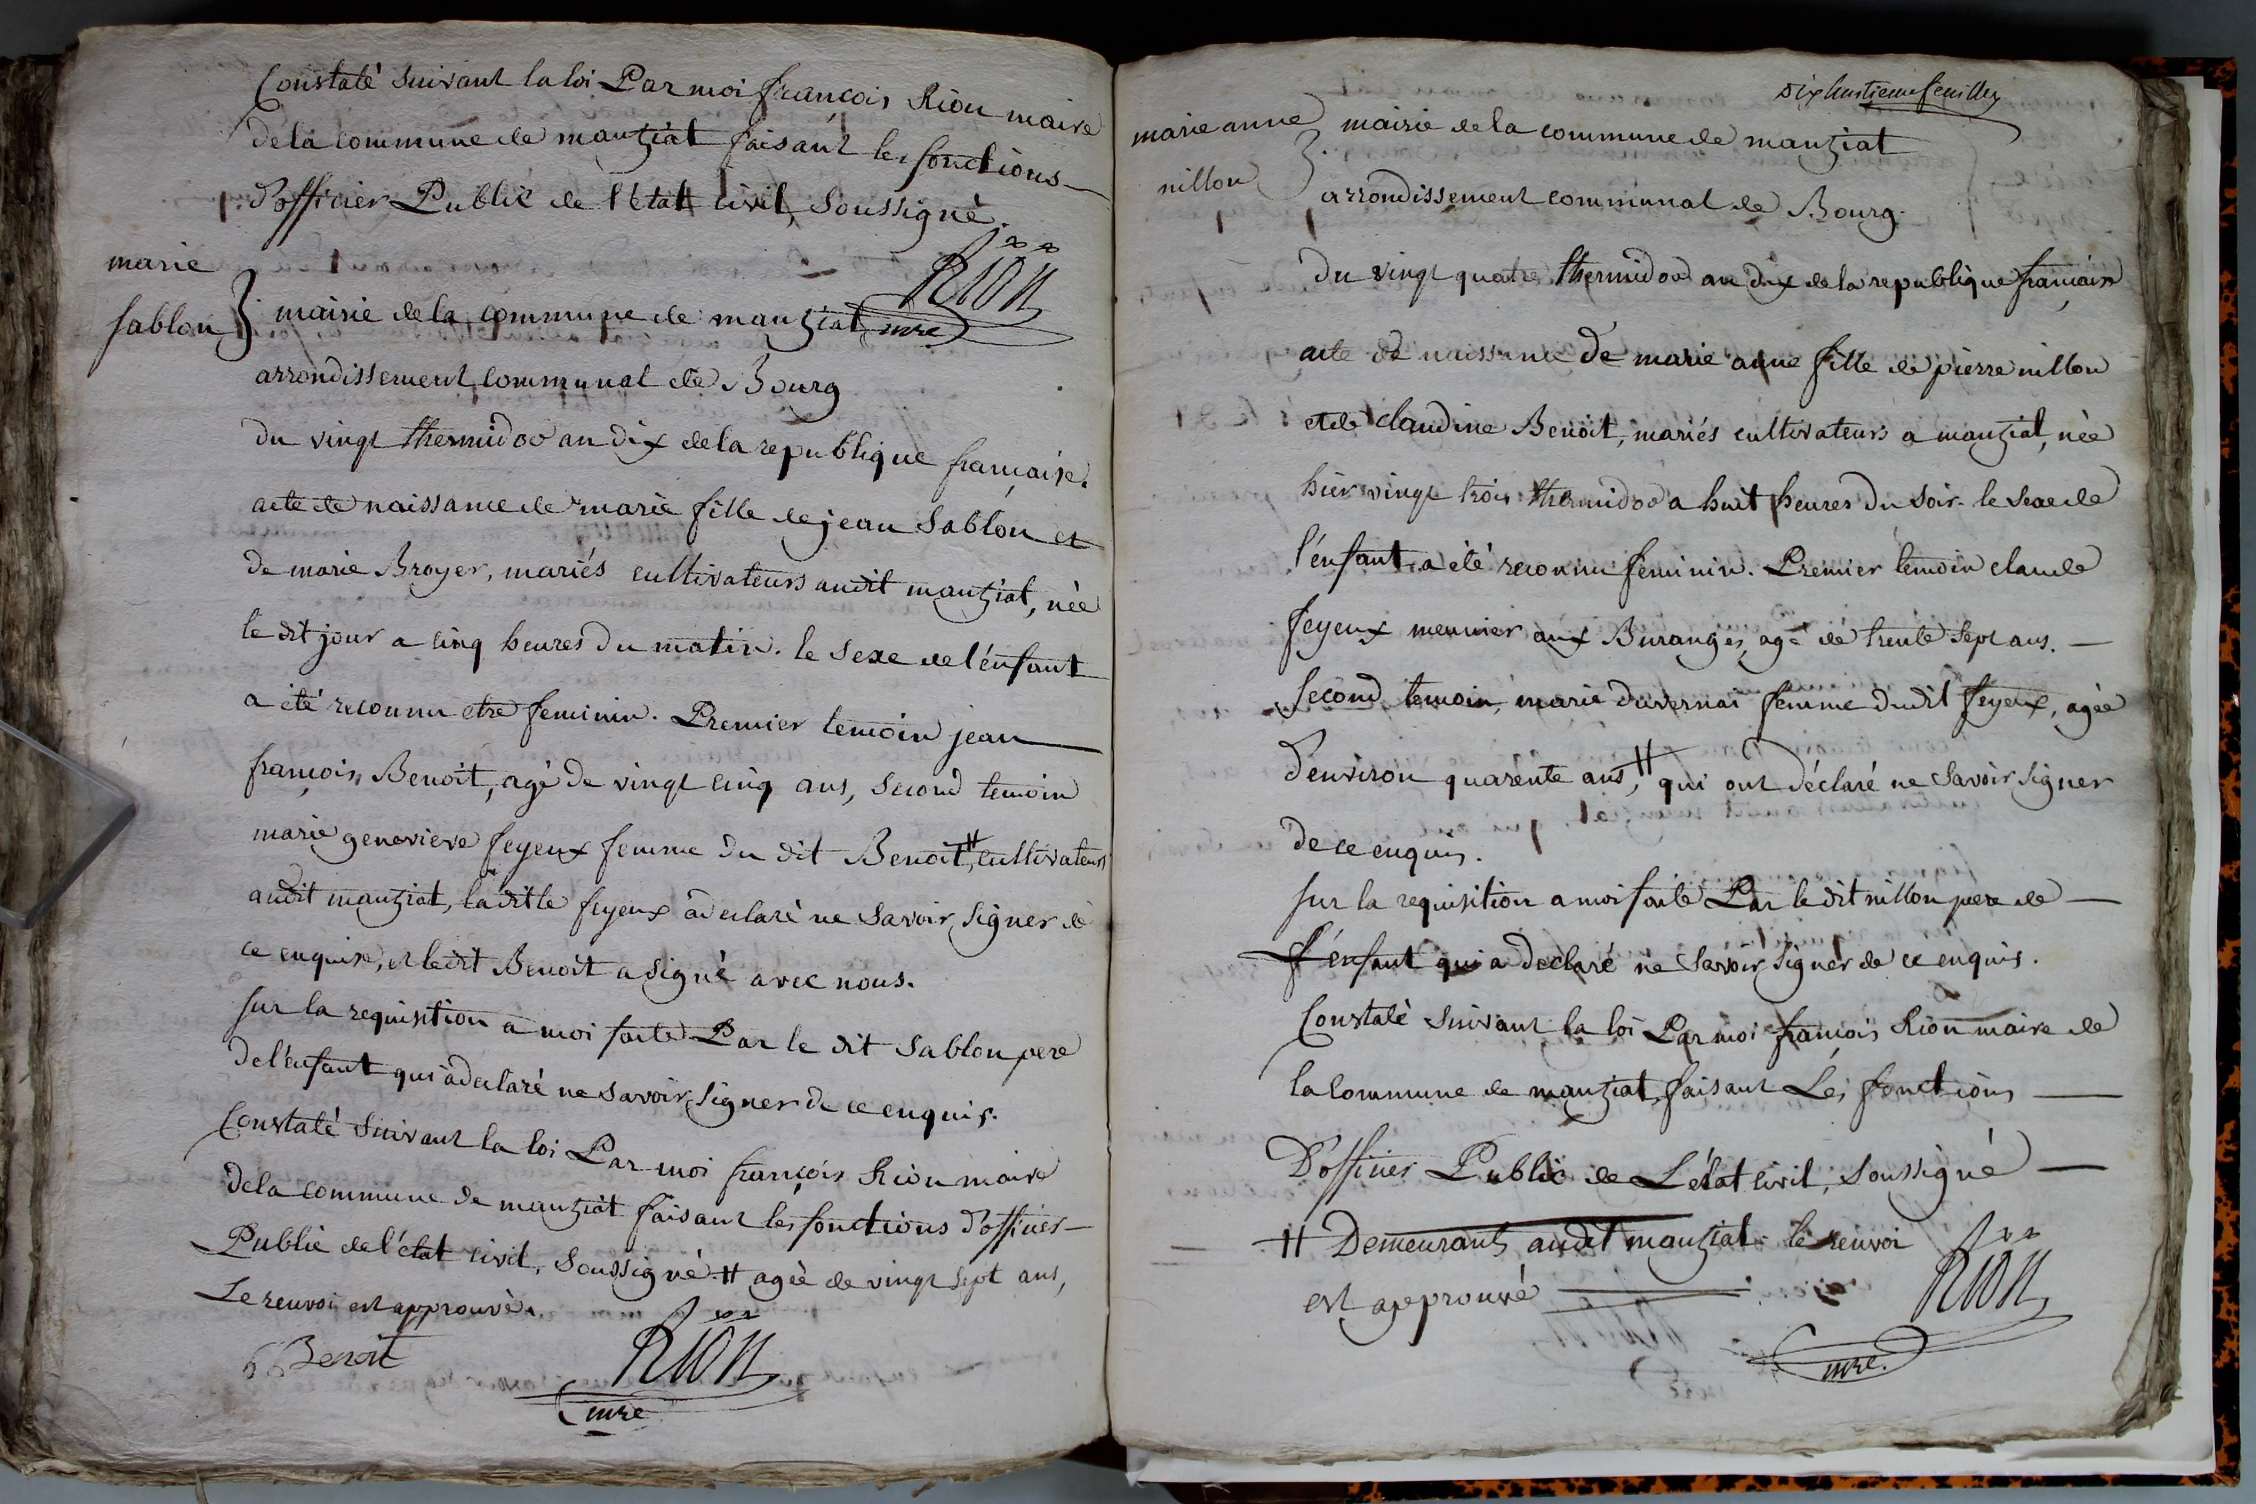 Constaté suivant la loi Par moi françois Rion maire
de la commune de manziat faisant les fonctions
d'officier Public de l'état civil, soussigné.
Rion
mre
marie
sablon
mairie de la commune de manziat
arrondissement communal de Bourg
du vingt thermidor an dix de la republique française.
acte de naissance de marie fille de jean Sablon et
de marie Broyer, mariés cultivateurs audit manziat, née
le dit jour a cinq heures du matin. le sexe de l'enfant
a été reconnu etre feminin. Premier temoin jean
françois Benoit, agé de vingt cinq ans, second temoin
marie genevieve feyeux femme du dit Benoit, # cultivateurs
audit manziat, laditte feyeux a declaré ne savoir signer de
ce enquise, et ledit Benoit a signé avec nous.
sur la requisition a moi faite Par le dit Sablon pere
de l'enfant qui a declaré ne savoir signer de ce enquis.
Constaté suivant la loi Par moi françois Rion maire
de la commune de manziat faisant les fonctions d'officier
Public de l'état civil, soussigné. # agée de vingt sept ans,
Le renvoi est approuvé.
Benoit
Rion
mre
Dix huitieme feuillet
marie anne
nillon
mairie de la commune de manziat
arrondissement communal de Bourg.
du vingt quatre thermidor an dix de la republique française
acte de naissance de marie anne fille de pierre nillon
et de claudine Benoit, mariés cultivateurs a manziat, née
hier vingt trois thermidor a huit heures du soir. le sexe de
l'enfant a été reconnu feminin. Premier temoin claude
feyeux meunier aux Buranges, agé de trente sept ans.
second temoin, marie duvernai femme dudit feyeux, agée
d'environ quarente ans, # qui ont déclaré ne savoir signer
de ce enquis.
sur la requisition a moi faite Par le dit nillon pere de
l'enfant qui a declaré ne savoir signer de ce enquis.
Constaté suivant la loi Par moi françois Rion maire de
la commune de manziat faisant Les fonctions
D'officier Public de L'état civil, soussigné
# Demeurants audit manziat. le renvoi
est approuvé
Rion
mre.